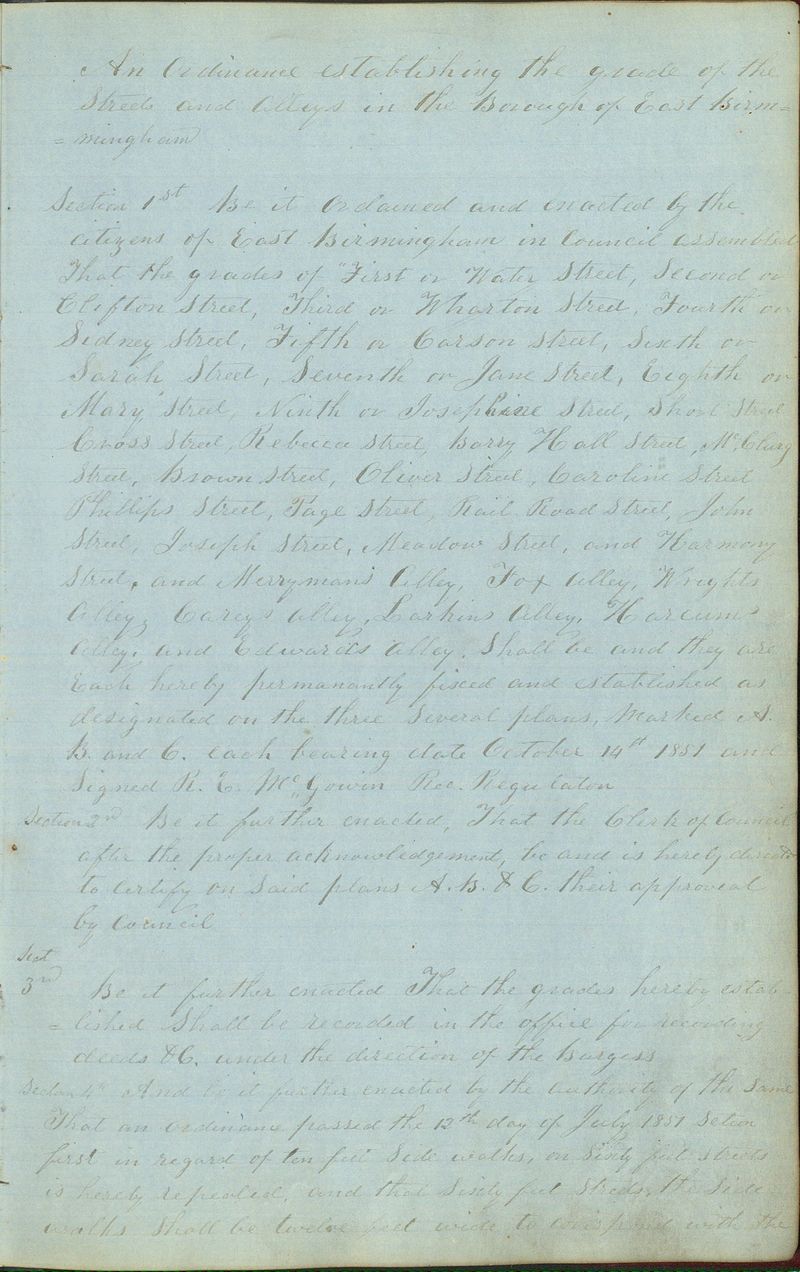 An Ordinance establishing the grade of the
Streets and Alleys in the Borough of East Birm=
=mingham
Section 1st Be it Ordained and enacted by the
citizens of East Birmingham in Council assembled
That the grades of "First or Water Street, Second or
Clifton Street, Third or Wharton Street, Fourth or
Sidney Street, Fifth or Carson Street, Sixth or
Sarah Street, Seventh or Jane Street, Eighth or
Mary, Street, Ninth or Josephine Street, Short Street
Cross Street, Rebecca Street, Barry Hall Street, McClurg
Street, Brown Street, Oliver Street, Caroline Street
Phillips Street, Page Street, Rail Road Street, John
Street, Joseph Street, Meadow Street, and Harmony
Street, and Merrymans Alley, Fox Alley, Wrights
Alley, Careys Alley, Larkins Alley, Harcums
Alley, and Edwards Alley. Shall be and they are
Each hereby permanantly fixed and established as
designated on the three Several plans, Marked A.
B. and C. each bearing date October 14th 1851 and
Signed R. E. McGowin Rec. Regulator
Section 2nd Be it further enacted, That the Clerk of Council
after the proper acknowledgement, be and is hereby directed
to Certify on Said plans A. B. & C. their approval
by Council
Sect
3rd Be it further enacted That the grades hereby estab-
=lished Shall be recorded in the office for recording
deeds &C. under the direction of the Burgess
Section 4th And be it further enacted by the authority of the Same
That an ordinance passed the 12th day of July 1851 Section
first in regard of ten feet Side walks, on Sixty feet streets
is hereby repealed, and that Sixty feet Streets, the Side
walks Shall be twelve feet wide to correspond with the